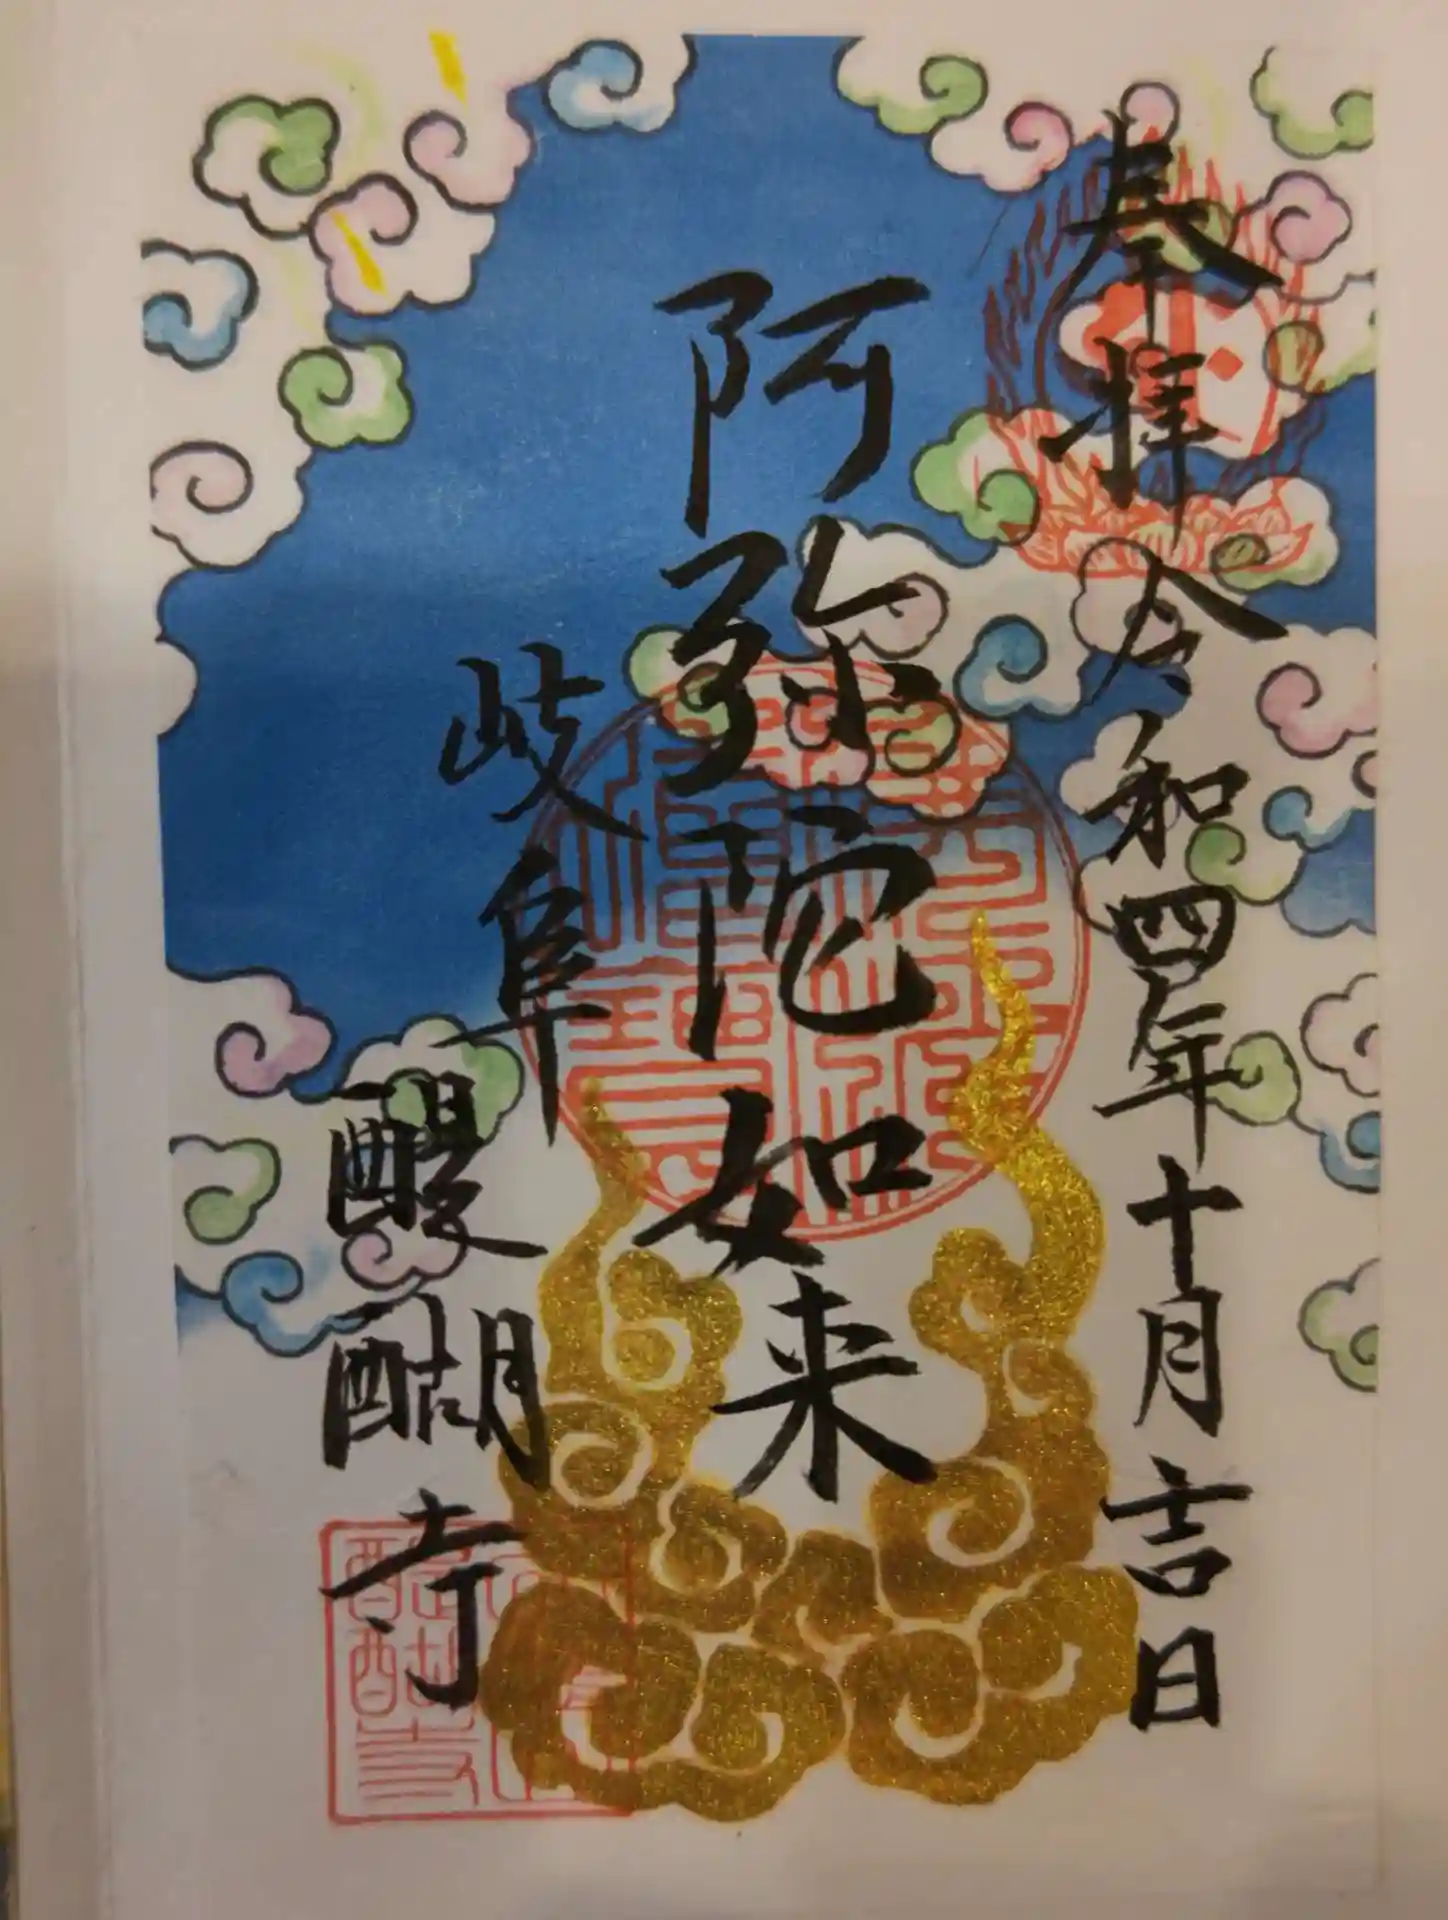 奉拝 令和四年十月吉日
阿弥陀如来
岐阜
醍醐寺